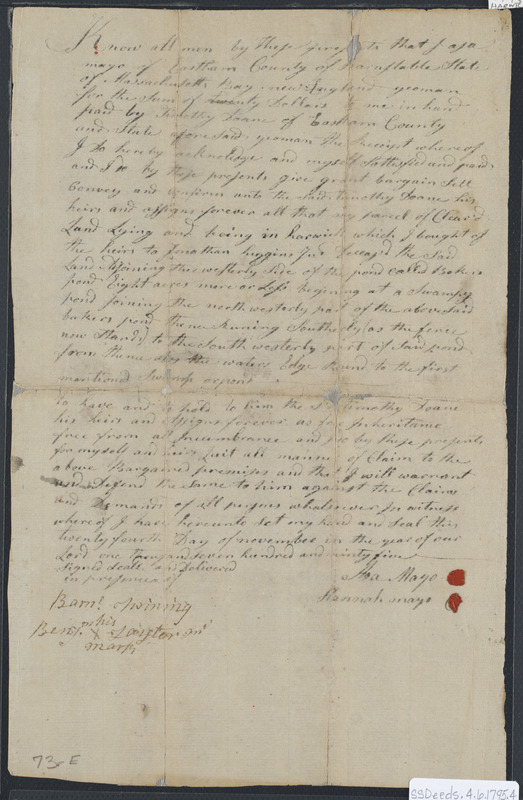 HARWI
Know all men by these presents that I asa
mayo of Eastham County of Barnstable State
of Massachusetts Bay new England yeoman
for the Sum of twenty Dollars to me in hand
paid by Timothy Doane of Eastham County
and State afore Said yeoman the Receipt whereof
I Do hereby acknoledge and myself Sattisfied and paid
and I Do by these presents give grant bargain Sell
Convey and Confirm unto the Said timothy Doane his
heirs and assigns forever all that my parcel of Clear'd
Land Lying and being in harwich which I bought of
the heirs to Jonathan higgins Jur Deceasd the Said
Land Adjoining the westerly Side of the pond called Bakers
pond Eight acres more or Less begining at a Swampy
pond joining the north westerly part of the above Said
bakers pond thence Runing Southerly as the fence
now Stands to the South westerly part of Said pond
from thence by the waters Edge Round to the first
mentioned Swamp or pond
to have and to hold to him the Sd timothy Doane
his heirs and assigns forever as for Inheritance
free from all Incumbrance and Do by these presents
for myself and heirs Quit all manner of Claim to the
above Bargained premises and that I will warrant
and defend the Same to him against the Claims
and Demands of all persons whatsoever In witness
whereof I have hereunto Set my hand and Seal this
twenty fourth Day of november in the year of our
Lord one thousand seven hundred and ninty five
Signed Seald and Delivered
in presence of
Asa Mayo
Hannah mayo
Barnb Twining
Benjn his X mark
73-E
SSDeeds.4.b.1795.4